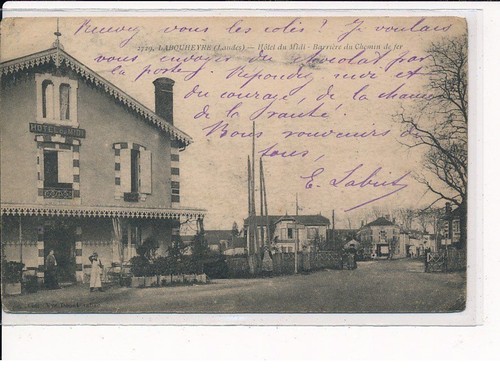 Recevez vous les colis ? Je voulais
2729. LABOUHEYRE (Landes) — Hôtel du Midi - Barrière du Chemin de fer
vous envoyer du chocolat par
la poste. Répondez moi et
du courage, de la chance
de la santé !
Bons souvenirs de
tous,
E. Labit
HOTEL DU MIDI